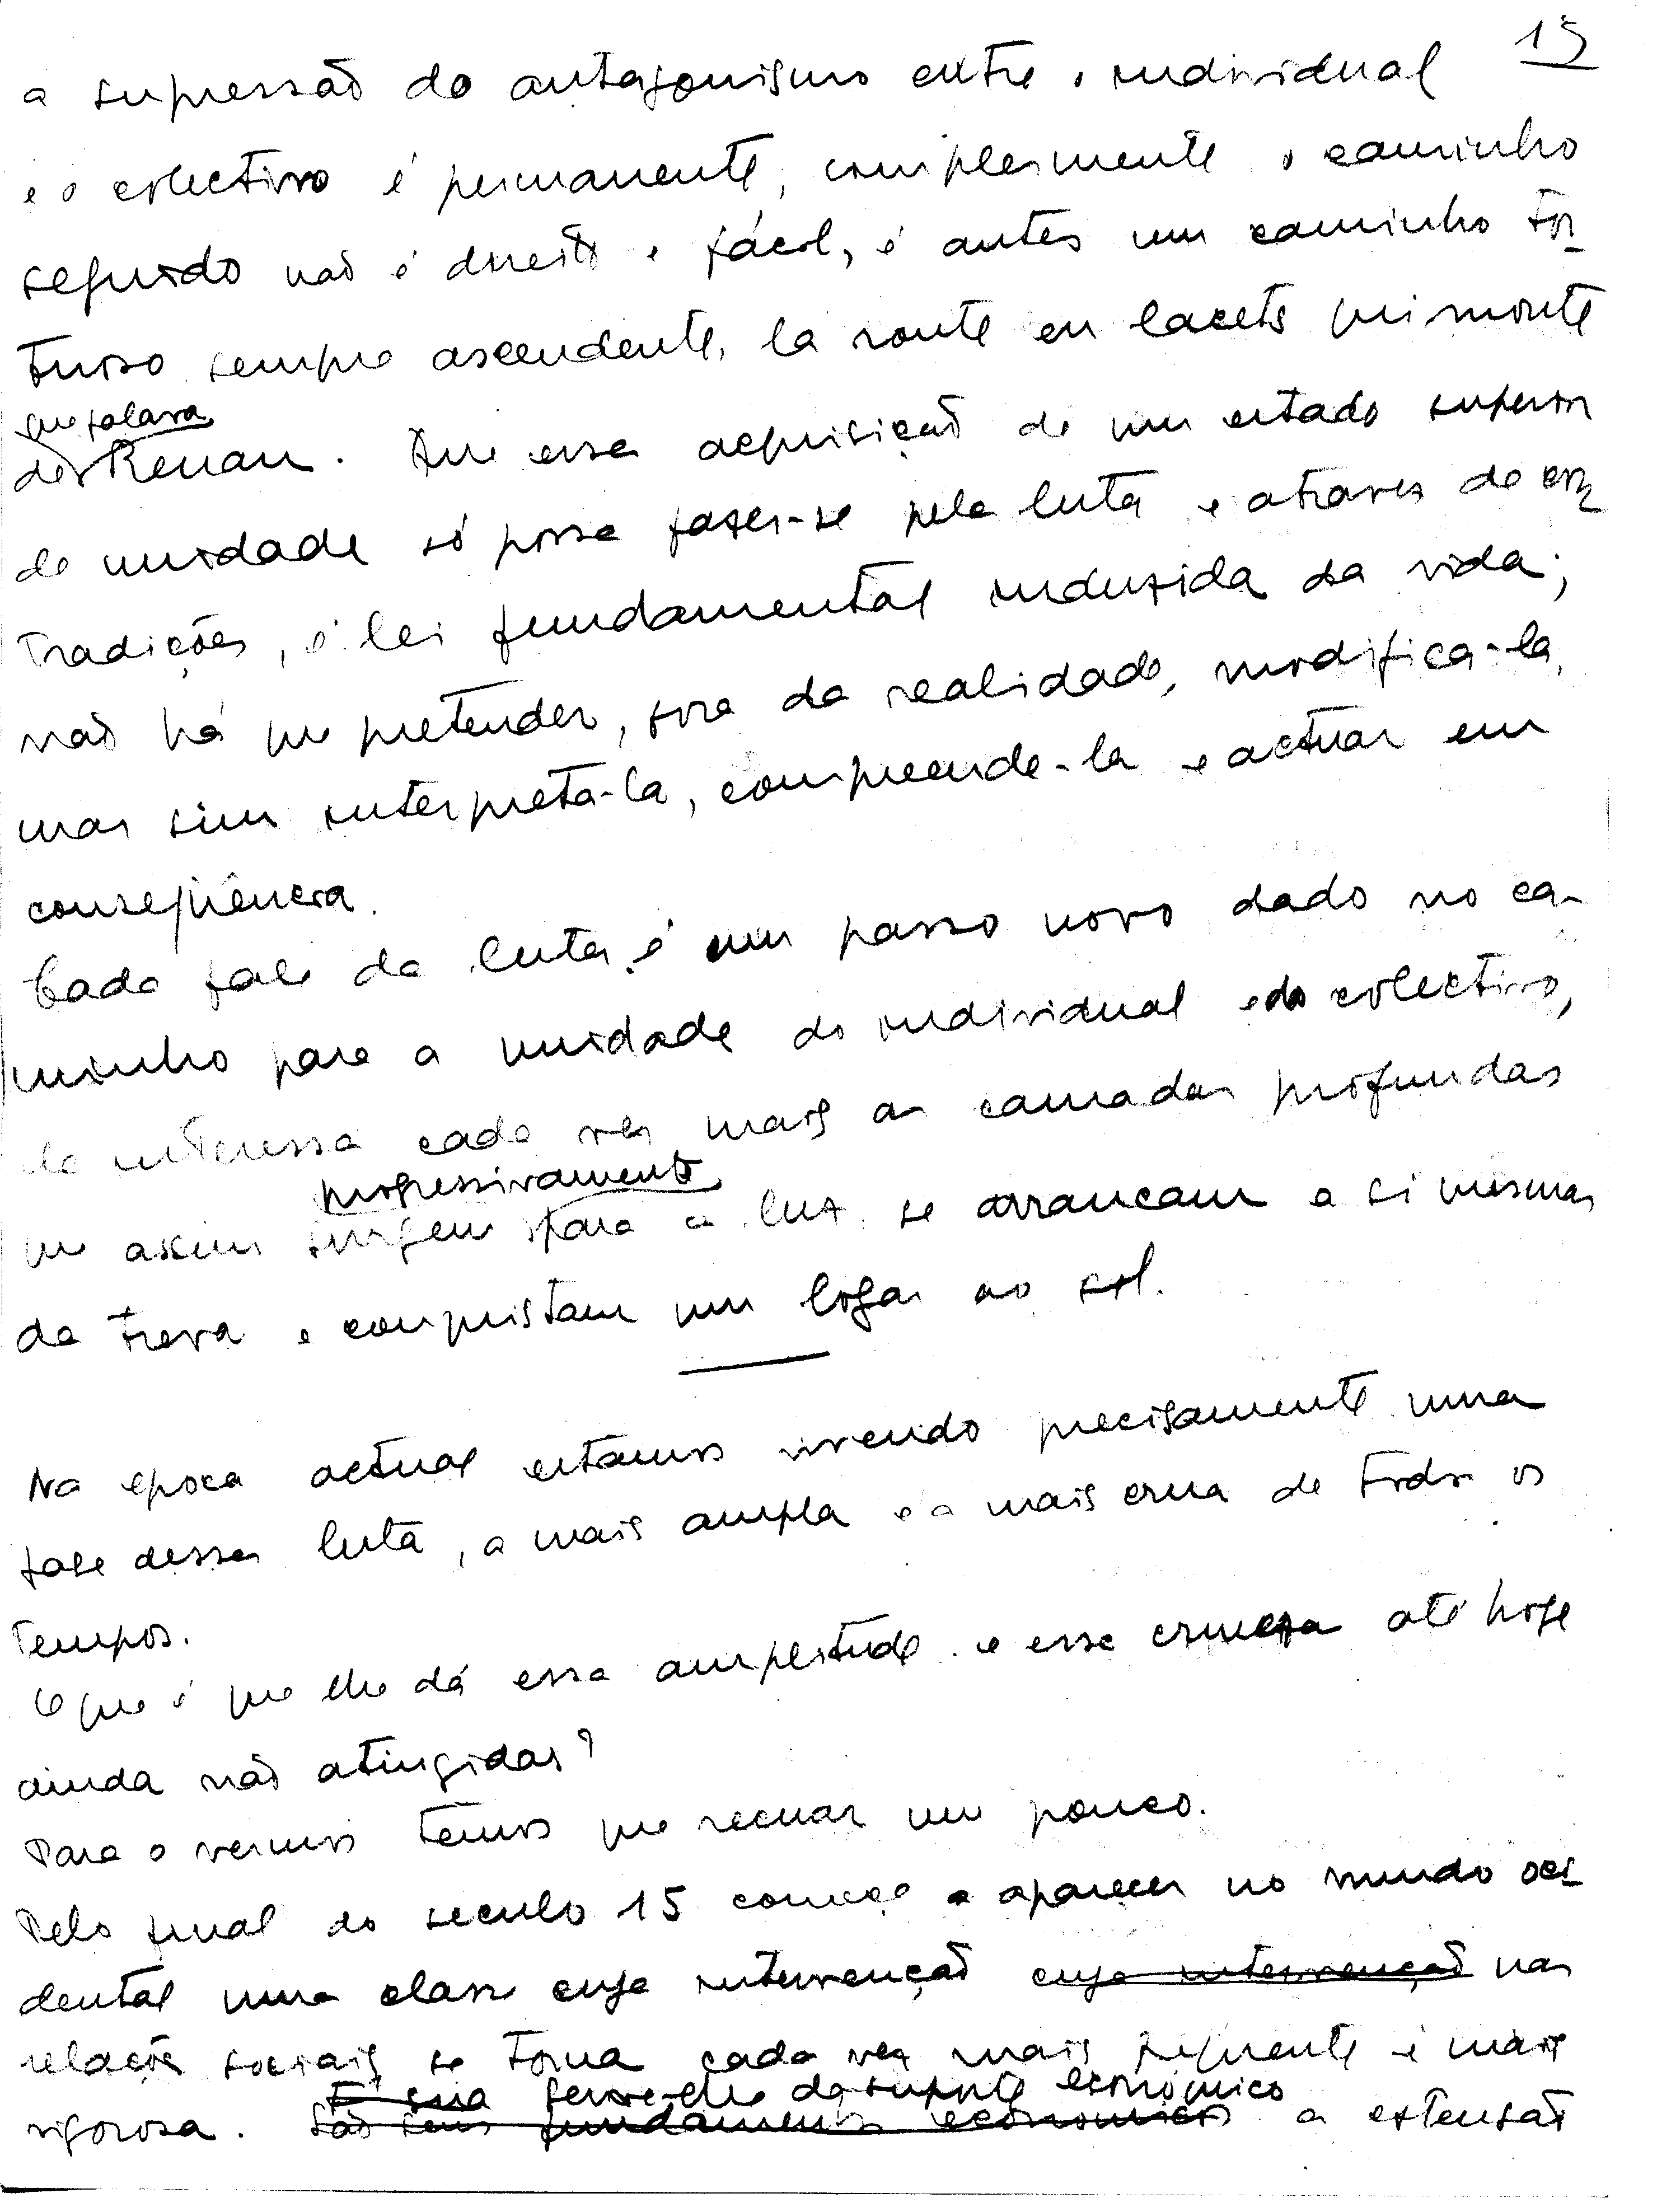 15
a supressão do antagonismo entre o individual
e o colectivo é permanente; simplesmente o caminho
seguido não é direito e fácil, é antes um caminho tor-
tuoso sempre ascendente, la route en lacets qui monte
que falava
de Renan. Que essa aquisição de um estado superior
de unidade só possa fazer-se pela luta e através de con-
tradições, é lei fundamental induzida da vida;
não há que pretender, fora da realidade, modifica-la,
mas sim interpreta-la, compreende-la e actuar em
conseqüência.
Cada fase da luta é um passo novo dado no ca-
minho para a unidade do individual e do colectivo,
ela interessa cada vez mais as camadas profundas
progressivamente
que assim surgem para a luz, se arrancam a si mesmas
da treva e conquistam um logar ao sol.
Na epoca actual estamos vivendo precisamente uma
fase dessa luta, a mais ampla e a mais crua de todos os
tempos.
O que é que lhe dá essa amplitude e essa crueza até hoje
ainda não atingidas?
Para o vermos temos que recuar um pouco.
Pelo final do seculo 15 começa a aparecer no mundo oci-
dental uma classe cuja intervenção cuja intervenção nas
relações sociais se torna cada vez mais frequente e mais
E sua serve-lhe de suporte económico
rigorosa. São seus fundamentos economicos a extensão